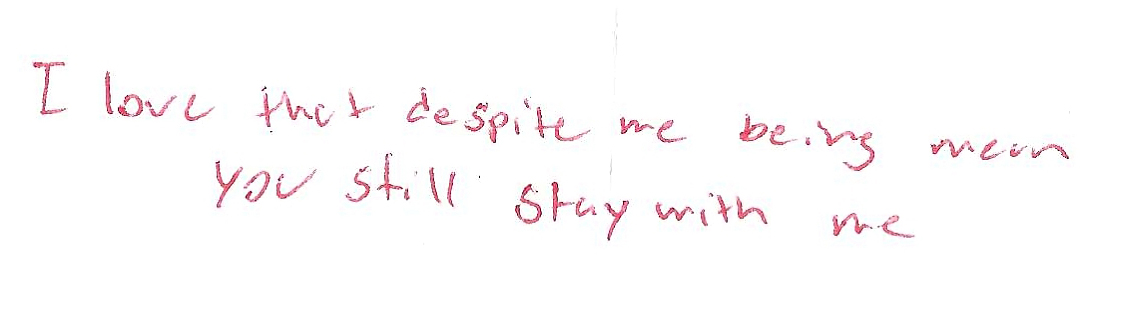 I love that despite me being mean
you still stay with me